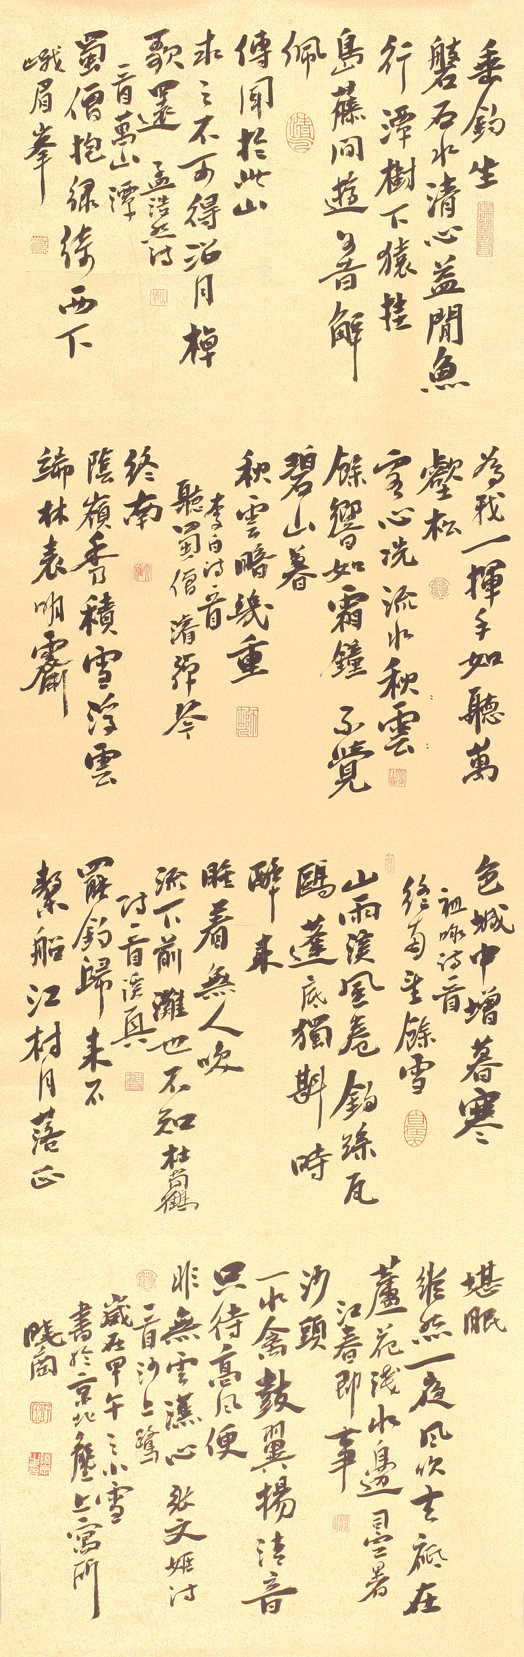 垂釣坐
磐石水清心益閒魚
行潭樹下猿挂
島藤間遊女昔解
佩
傳聞於此山
求之不可得沿月棹
歌還 孟浩然詩
一首萬山潭
蜀僧抱綠綺西下
峨眉峯
為我一揮手如聽萬
壑松
客心洗流水秋雲
餘響如霜鐘不覺
碧山暮
秋雲暗幾重
李白詩一首
聽蜀僧濬彈琴
終南
陰嶺秀積雪浮雲
端林表明霽
色城中增暮寒
祖咏詩一首
終南望餘雪
山雨溪風卷釣絲瓦
甌蓬底獨斟時
醉來
睡著無人喚
流下前灘也不知 杜荀鶴
詩一首溪興
罷釣歸來不
繫船江村月落正
堪眠
縱然一夜風吹去祗在
蘆花淺水邊 司空曙
江春即事
沙頭
一水禽鼓翼揚清音
只待高風便
非無雲漢心 張文姬詩
一首沙上鷺
歲在甲午之小雪
書於京北 上寓所